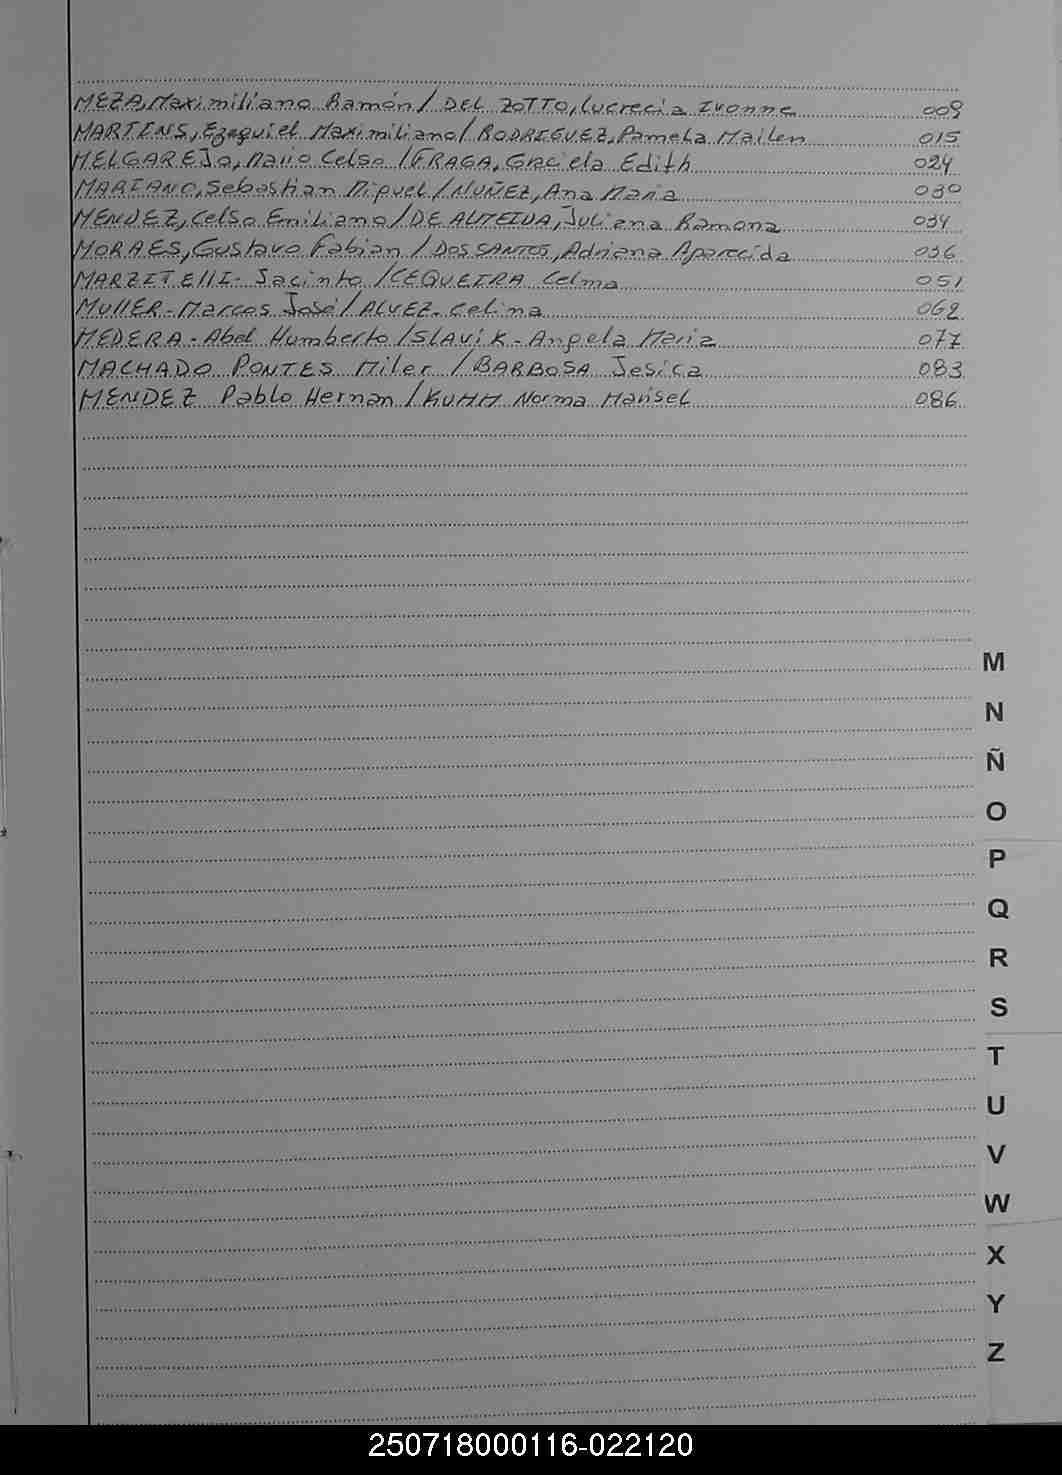 MEZA, Maximiliano Ramón / DEL ZOTTO, Lucrecia Ivonne 009
MARTINS, Ezequiel Maximiliano / RODRIGUEZ, Pamela Mailen 015
MELGAREJO, Mario Celso / FRAGA, Graciela Edith 024
MARIANO, Sebastian Miguel / NUÑEZ, Ana Maria 030
MENDEZ, Celso Emiliano / DE ALMEIDA, Juliana Ramona 034
MORAES, Gustavo Fabian / DOS SANTOS, Adriana Aparecida 036
MARZITELLI - Jacinto / CEQUEIRA Celma 051
MULLER - Marcos José / ALVEZ - Celina 062
MEDERA - Abel Humberto / SLAVIK - Angela Maria 077
MACHADO PONTES Miler / BARBOSA Jesica 083
MENDEZ Pablo Hernan / KUHM Norma Marisel 086
M
N
Ñ
O
P
Q
R
S
T
U
V
W
X
Y
Z
250718000116-022120